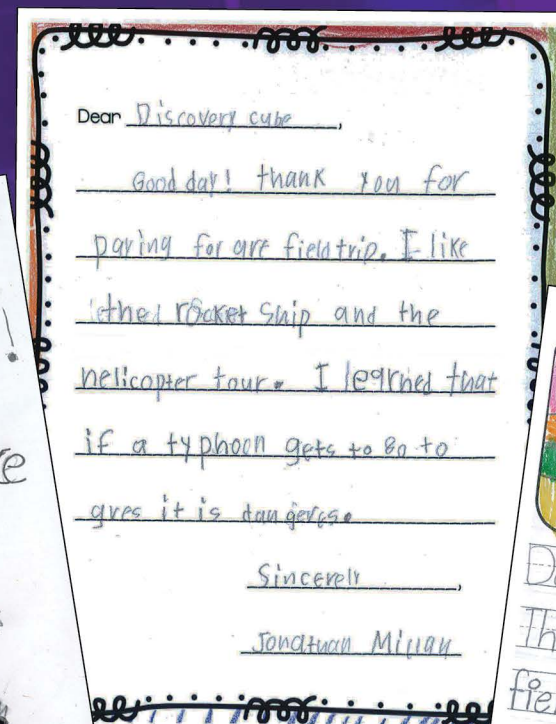 Dear Discovery cube,
Good day! thank you for
paying for are field trip. I like
the rocket ship and the
helicopter tour. I learned that
if a typhoon gets to 80 to
it is
Sincerely,
Jonathan Millan
!
e
D
Th
fie